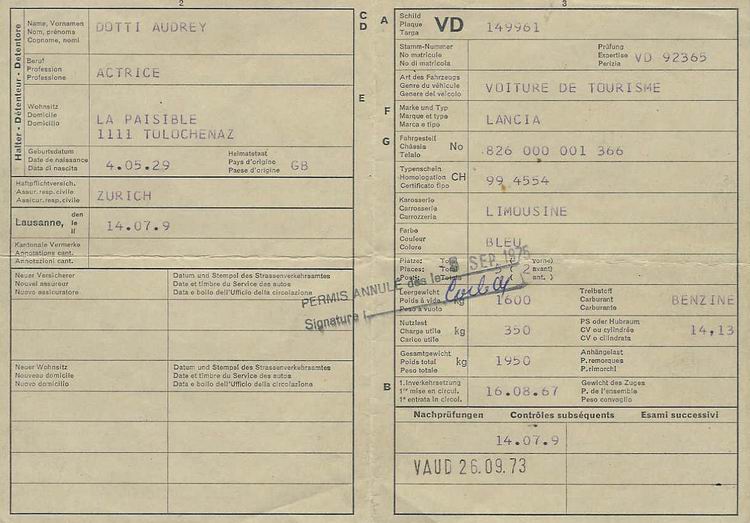 2
Halter - Détenteur - Detentore
Name, Vornamen
Nom, prénoms
Cognome, nomi
DOTTI AUDREY
C
D
Beruf
Profession
Professione
ACTRICE
Wohnsitz
Domicile
Domicilio
LA PAISIBLE
1111 TULOCHENAZ
E
Geburtsdatum
Date de naissance
Data di nascita
4.05.29
Heimatstaat
Pays d'origine
Paese d'origine
GB
Haftpflichtversich.
Assur. resp. civile
Assicur. resp. civile
ZURICH
Lausanne, den
le
il
14.07.9
Kantonale Vermerke
Annotations cant.
Annotazioni cant.
Neuer Versicherer
Nouvel assureur
Nuovo assicuratore
Datum und Stempel des Strassenverkehrsamtes
Date et timbre du Service des autos
Data e bollo dell'Ufficio della circolazione
Neuer Wohnsitz
Nouveau domicile
Nuovo domicilio
Datum und Stempel des Strassenverkehrsamtes
Date et timbre du Service des autos
Data e bollo dell'Ufficio della circolazione
PERMIS ANNULÉ dès le 8 SEP. 1975
Signature
3
A
Schild
Plaque
Targa
VD 149961
Stamm-Nummer
No matricule
No di matricola
Prüfung
Expertise
Perizia
VD 92365
Art des Fahrzeugs
Genre du véhicule
Genere del veicolo
VOITURE DE TOURISME
F
Marke und Typ
Marque et type
Marca e tipo
LANCIA
G
Fahrgestell
Châssis
Telaio
No
826 000 001 366
Typenschein
Homologation
Certificato tipo
CH
99 4554
Karosserie
Carrosserie
Carrozzeria
LIMOUSINE
Farbe
Couleur
Colore
BLEU
Plätze:
Places:
Posti:
5 ( 2
vorne)
avant)
ant. )
Leergewicht
Poids à vide
Peso a vuoto
kg
1600
Treibstoff
Carburant
Carburante
BENZINE
Nutzlast
Charge utile
Carico utile
kg
350
PS oder Hubraum
CV ou cylindrée
CV o cilindrata
14,13
Gesamtgewicht
Poids total
Peso totale
kg
1950
Anhängelast
P. remorques
P. rimorchi
B
1. Inverkehrsetzung
1re mise en circul.
1a entrata in circol.
16.08.67
Gewicht des Zuges
P. de l'ensemble
Peso convoglio
Nachprüfungen Contrôles subséquents Esami successivi
14.07.9
VAUD 26.09.73